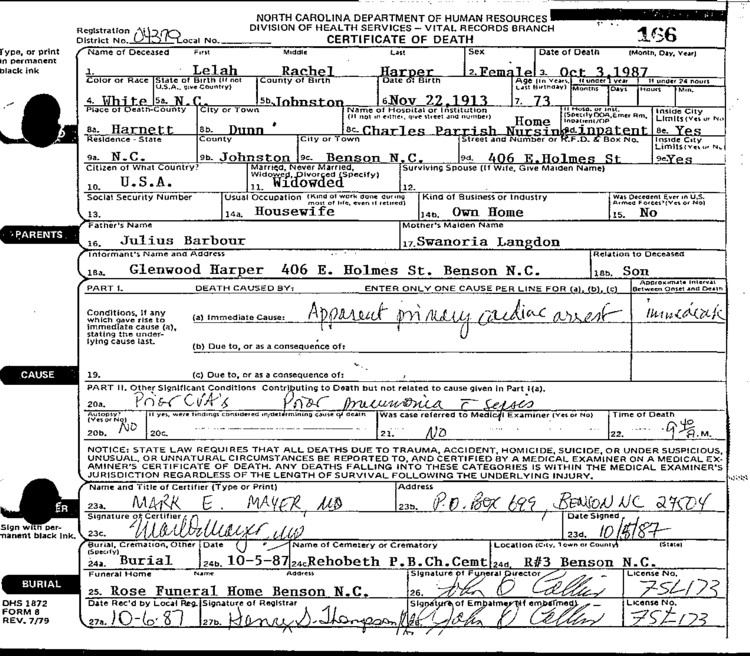 NORTH CAROLINA DEPARTMENT OF HUMAN RESOURCES
DIVISION OF HEALTH SERVICES – VITAL RECORDS BRANCH
CERTIFICATE OF DEATH
166
Registration District No. 04379 Local No.
Type, or print in permanent black ink
Name of Deceased First Middle Last Sex Date of Death (Month, Day, Year)
1. Lelah Rachel Harper 2. Female 3. Oct 3,1987
Color or Race State of Birth (If not U.S.A., give Country) County of Birth Date of Birth Age (In Years, Last Birthday) If under 1 year Months Days If under 24 hours Hours Min.
4. White 5a. N.C. 5b. Johnston 6. Nov 22,1913 7. 73
Place of Death-County City or Town Name of Hospital or Institution (If not in either, give street and number) If Hosp. or Inst. (Specify DOA, Emer Rm, Inpatient/OP Inside City Limits (Yes or No)
8a. Harnett 8b. Dunn 8c. Charles Parrish Nursing Home 8d. inpatent 8e. Yes
Residence - State County City or Town Street and Number or R.F.D. & Box No. Inside City Limits (Yes or No)
9a. N.C. 9b. Johnston 9c. Benson N.C. 9d. 406 E.Holmes St 9e. Yes
Citizen of What Country? Married, Never Married, Widowed, Divorced (Specify) Surviving Spouse (If Wife, Give Maiden Name)
10. U.S.A. 11. Widowded 12.
Social Security Number Usual Occupation (Kind of work done during most of life, even if retired) Kind of Business or Industry Was Decedent Ever in U.S. Armed Forces? (Yes or No)
13. 14a. Housewife 14b. Own Home 15. No
PARENTS
Father's Name Mother's Maiden Name
16. Julius Barbour 17. Swanoria Langdon
Informant's Name and Address Relation to Deceased
18a. Glenwood Harper 406 E. Holmes St. Benson N.C. 18b. Son
PART I. DEATH CAUSED BY: ENTER ONLY ONE CAUSE PER LINE FOR (a), (b), (c) Approximate Interval Between Onset and Death
Conditions, if any which gave rise to immediate cause (a), stating the underlying cause last.
(a) Immediate Cause: Apparent primary cardiac arrest immediate
(b) Due to, or as a consequence of:
CAUSE
19. (c) Due to, or as a consequence of:
PART II. Other Significant Conditions Contributing to Death but not related to cause given in Part I(a).
20a. Prior CVA's Prior pneumonia sepsis
Autopsy? (Yes or No) If yes, were findings considered in determining cause of death Was case referred to Medical Examiner (Yes or No) Time of Death
20b. NO 20c. 21. NO 22. 9 40 A.M.
NOTICE: STATE LAW REQUIRES THAT ALL DEATHS DUE TO TRAUMA, ACCIDENT, HOMICIDE, SUICIDE, OR UNDER SUSPICIOUS,
UNUSUAL, OR UNNATURAL CIRCUMSTANCES BE REPORTED TO, AND CERTIFIED BY A MEDICAL EXAMINER ON A MEDICAL EX-
AMINER'S CERTIFICATE OF DEATH. ANY DEATHS FALLING INTO THESE CATEGORIES IS WITHIN THE MEDICAL EXAMINER'S
JURISDICTION REGARDLESS OF THE LENGTH OF SURVIVAL FOLLOWING THE UNDERLYING INJURY.
Name and Title of Certifier (Type or Print) Address
23a. MARK E. MAYER, MD 23b. P.O. BOX 699, BENSON NC 27504
ER
Sign with permanent black ink.
Signature of Certifier Date Signed
23c. 23d. 10/5/87
Burial, Cremation, Other (Specify) Date Name of Cemetery or Crematory Location (City, Town or County) (State)
24a. Burial 24b. 10-5-87 24c. Rehobeth P.B.Ch.Cemt 24d. R#3 Benson N.C.
BURIAL
Funeral Home Name Address Signature of Funeral Director License No.
25. Rose Funeral Home Benson N.C. 26. John O FSL173
Date Rec'd by Local Reg. Signature of Registrar Signature of Embalmer (if embalmed) License No.
27a. 10-6-87 27b. Henry S. Thompson John O FSL173
DHS 1872
FORM 8
REV. 7/79